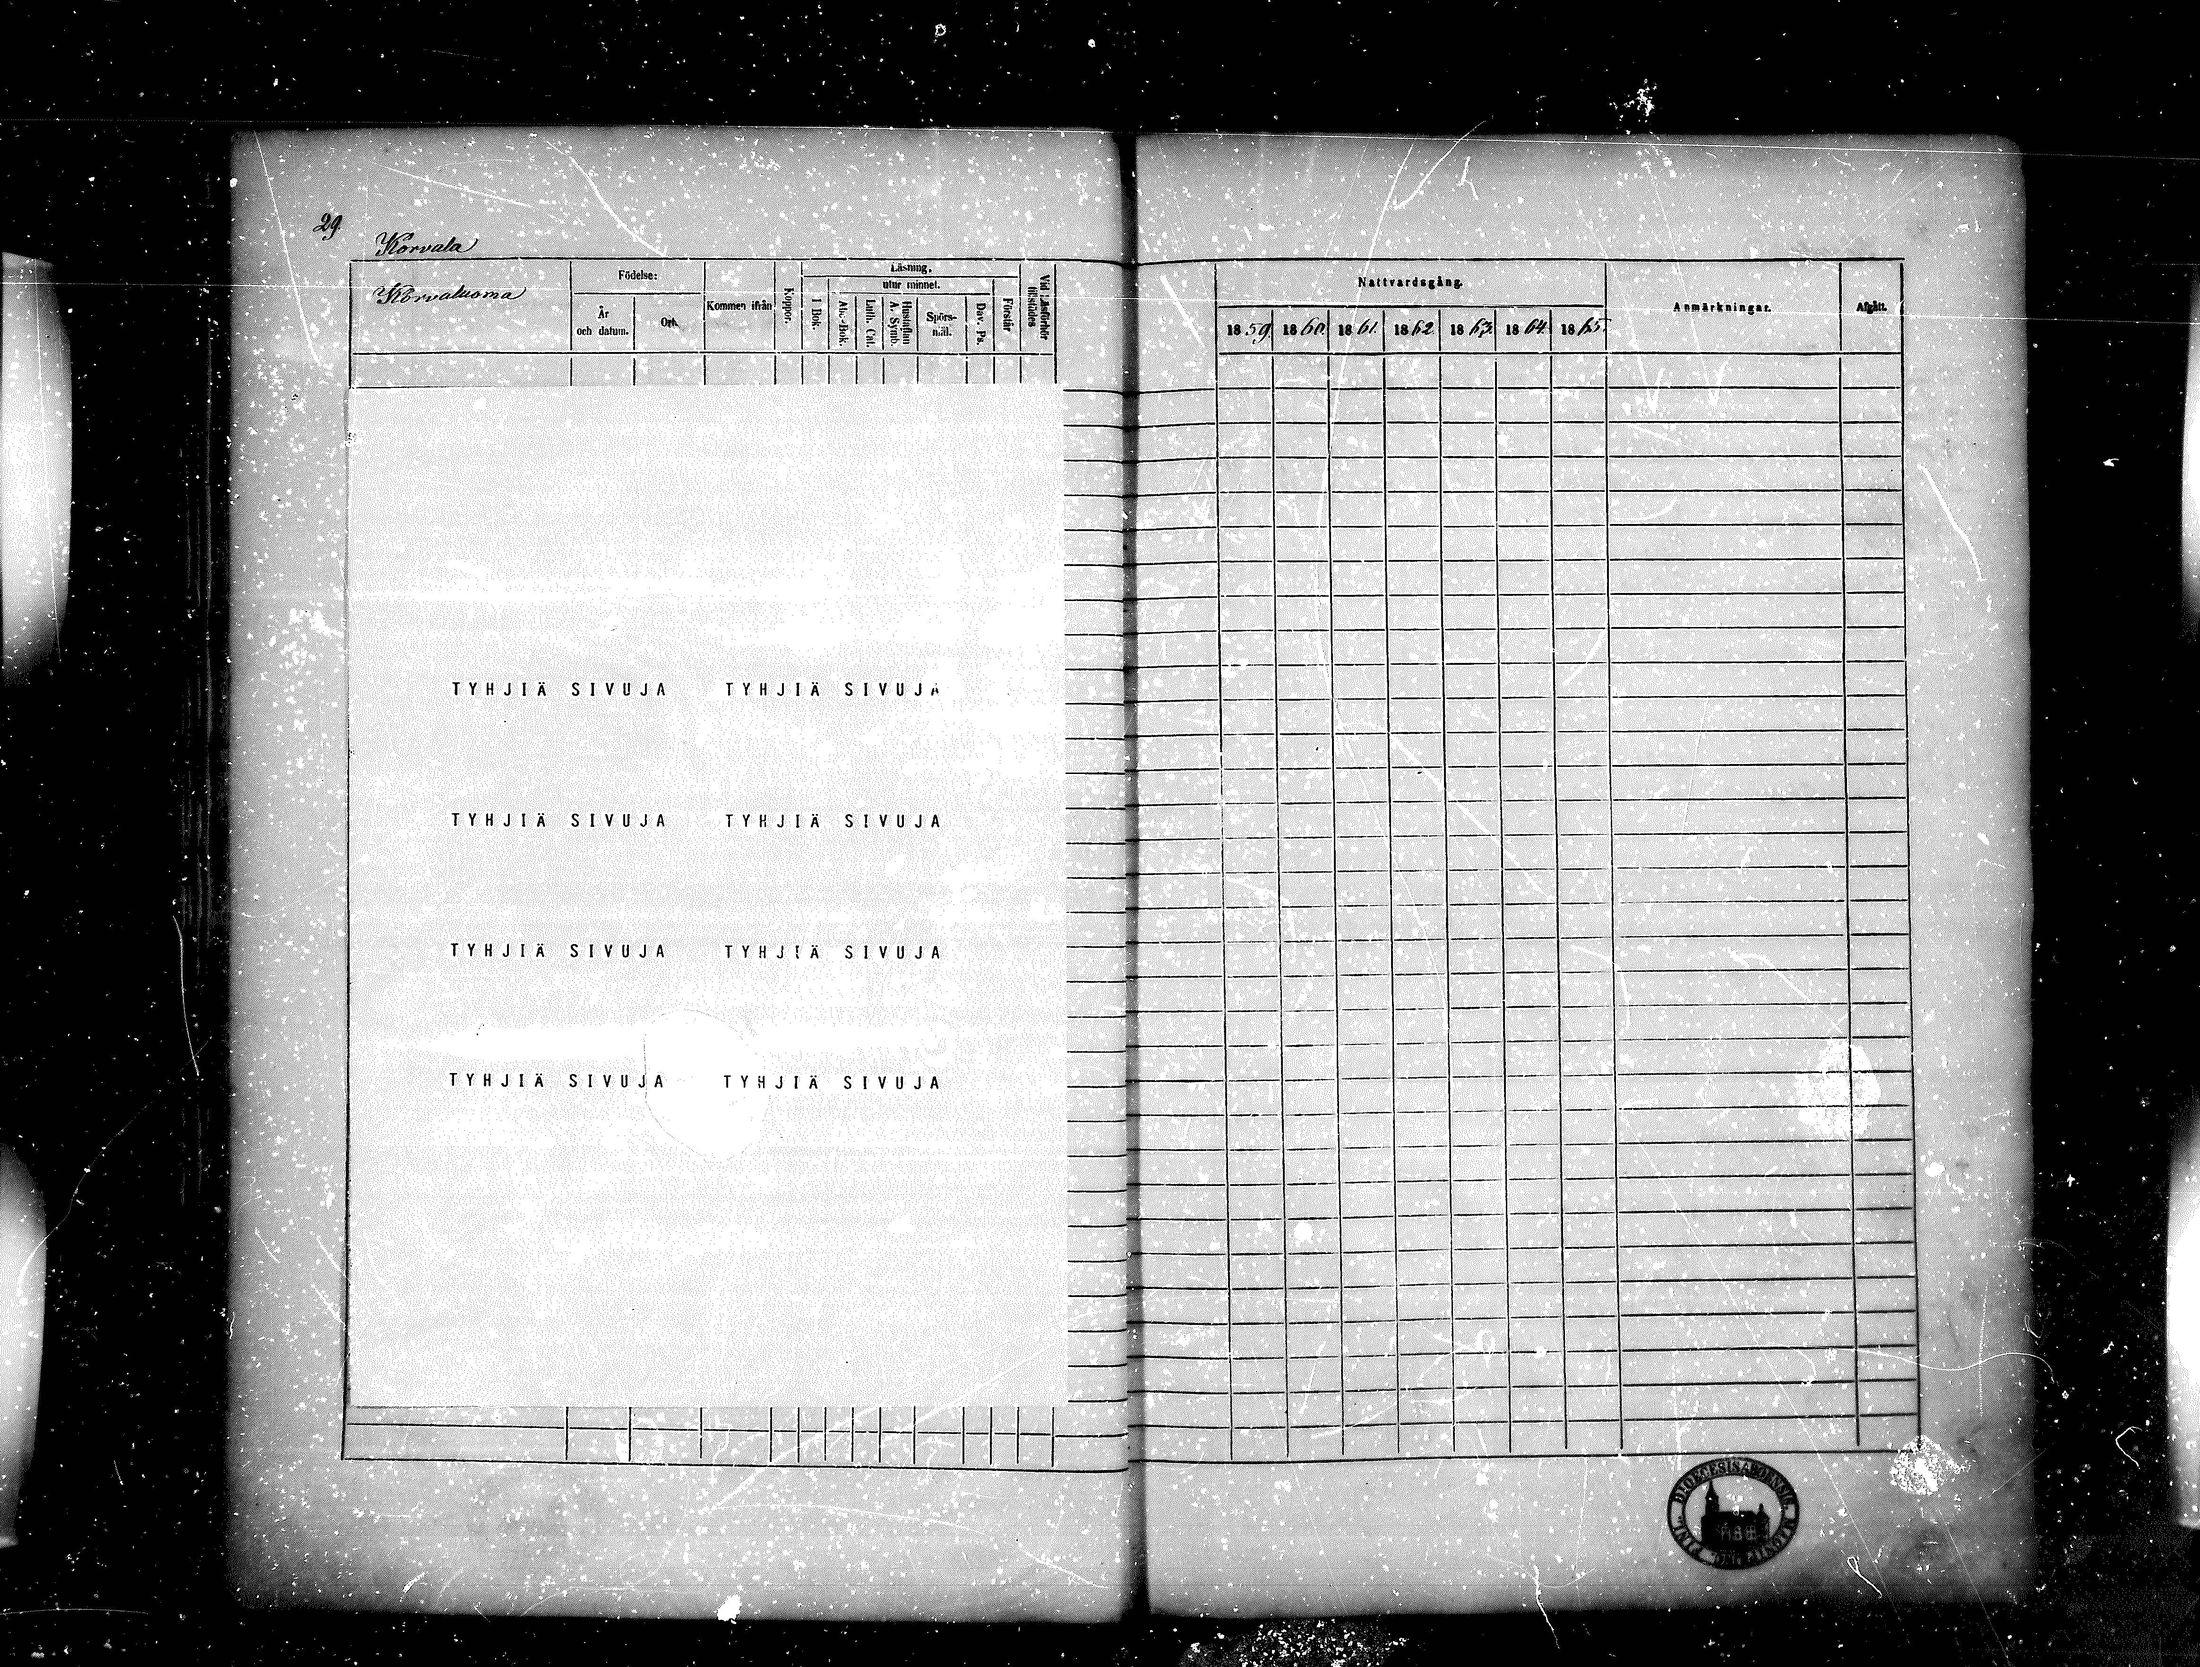 29.
Korvala
Korvaluoma
Födelse:
År
och datum.
Ort.
Kommen ifrån
Koppor.
Läsning,
utur minnet.
I Bok.
Abc-Bok.
Luth. Cat.
Hustaflan
A. Symb.
Spörs-
mål.
Dav. Ps.
Förstår
Vid Läsförhör
tillstädes
Nattvardsgång.
1859. 1860. 1861. 1862 1863. 1864. 1865.
Anmärkningar.
Afgått.
TYHJIÄ SIVUJA TYHJIÄ SIVUJA
TYHJIÄ SIVUJA TYHJIÄ SIVUJA
TYHJIÄ SIVUJA TYHJIÄ SIVUJA
TYHJIÄ SIVUJA TYHJIÄ SIVUJA
DIOECESIS ABOENSIS